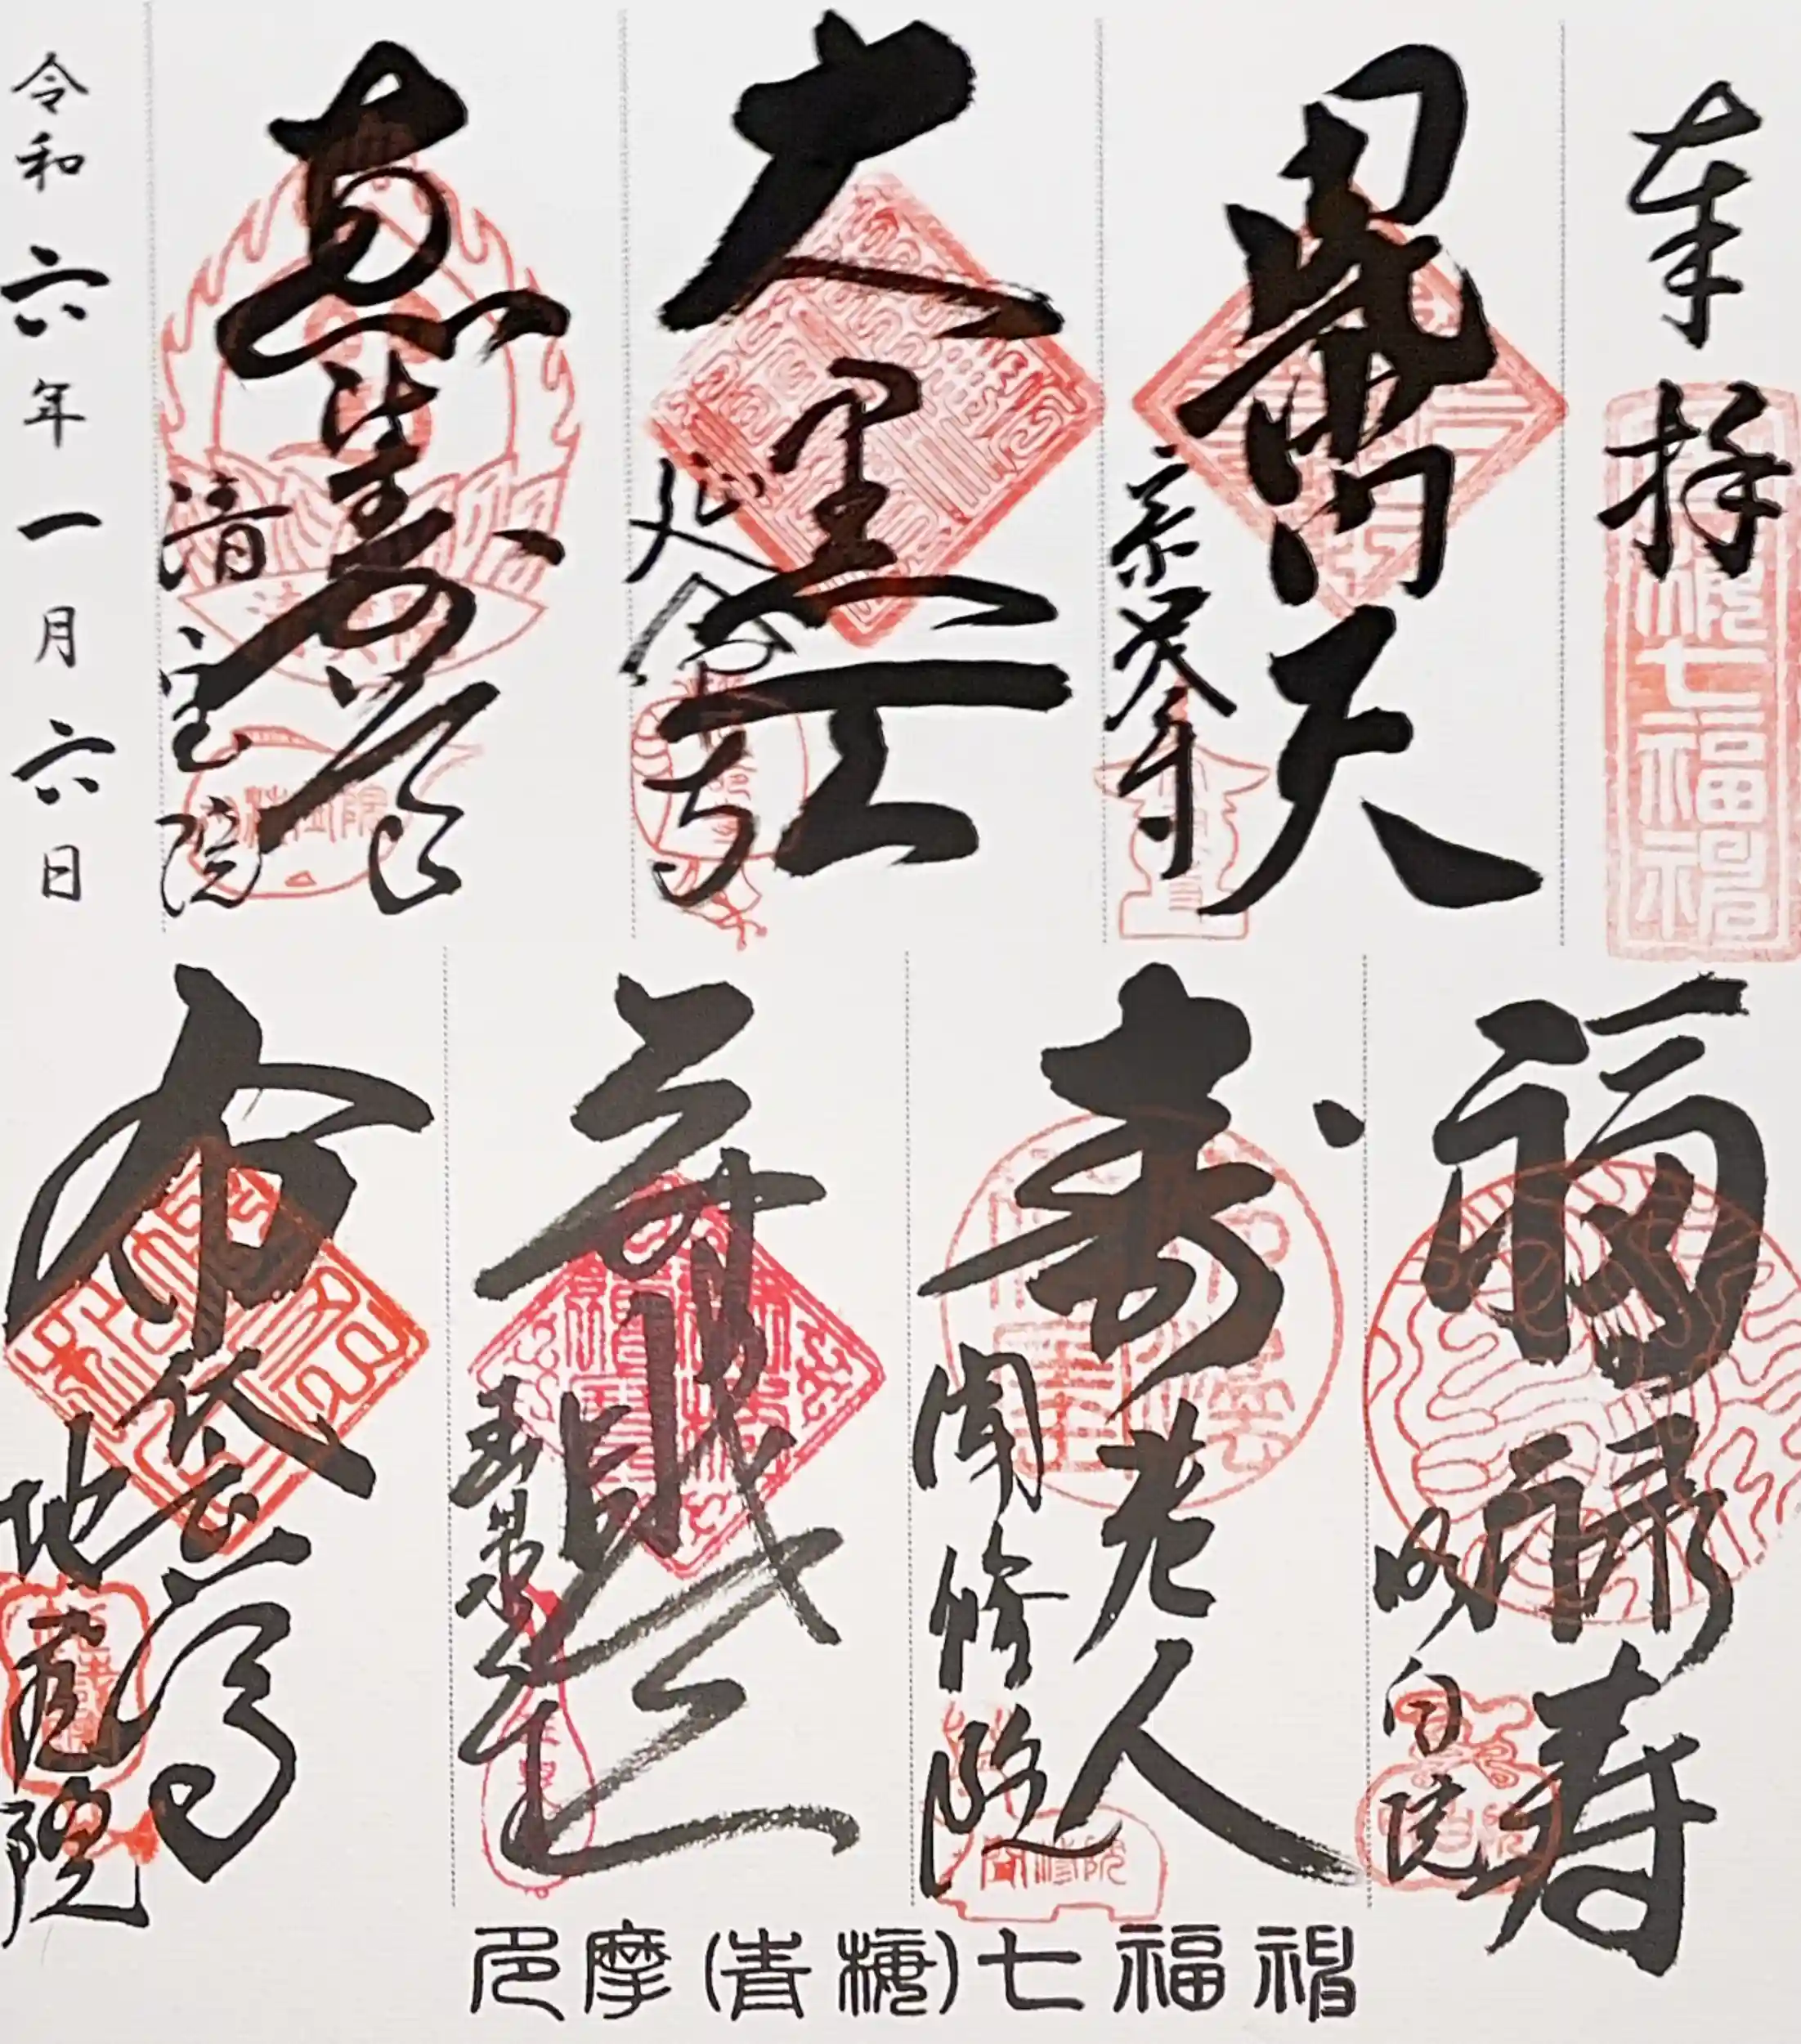 奉拝
七福神
毘沙門天
宗建寺
大黒天
延命寺
恵比寿尊
清宝院
令和六年一月六日
福禄寿
明白院
寿老人
聞修院
聞修院
弁財天
玉泉寺
布袋尊
地蔵院
多摩(青梅)七福神